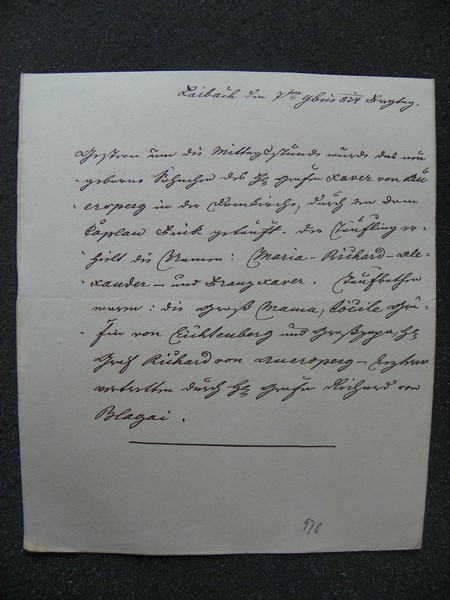 Laibach den 7ten 9bris 824 Freytag.
Gestern um die Mittagsstunde wurde das neu
geborne Söhnchen des H: Grafen Xaver von Au
ersperg in der Domkirche, durch den dom
Caplan getauft. der Täufling er
hielt die Namen: Maria - Richard - Ale
xander - und Franz Xaver. Taufpathen
waren: die Groß Mama, Cäcilie Grä
fin von Lichtenberg und Großpapa, H:
Graf Richard von Auersperg -
vertretten durch H: Grafen Richard von
Blagai.
978